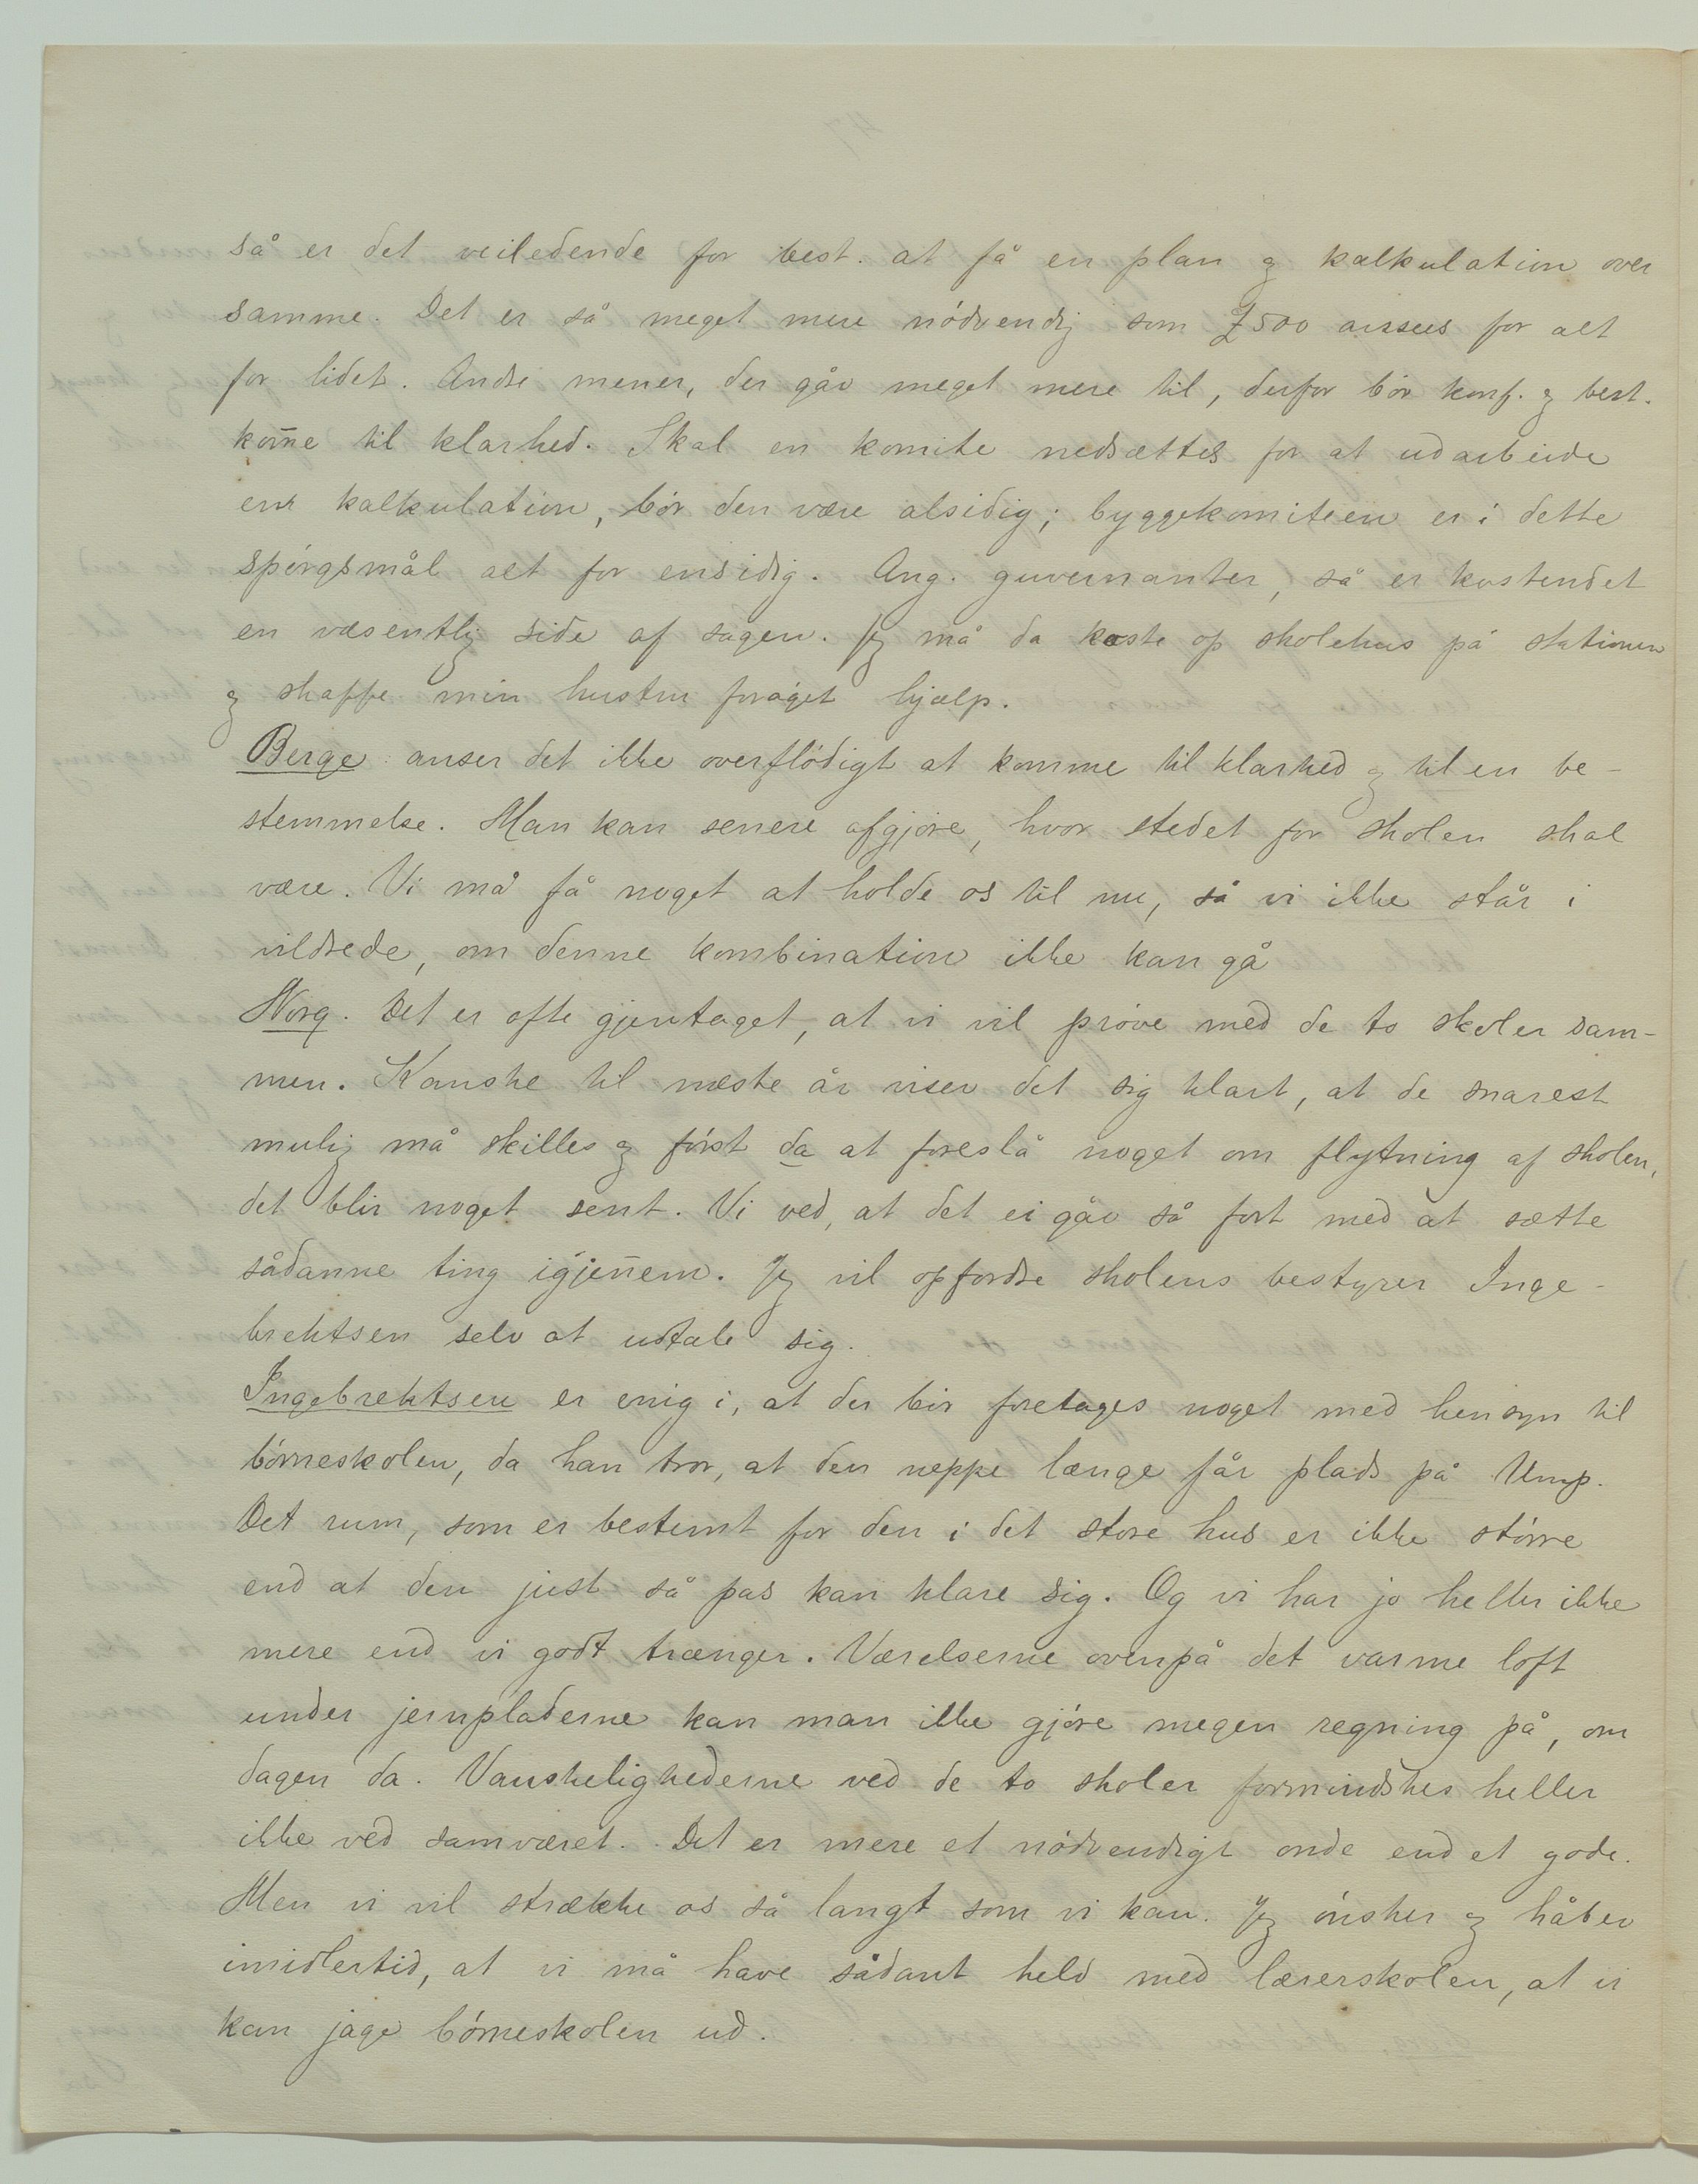 så er det veiledende for best. at få en plan og kalkulation over
samme. Det er så meget mere nödvendig som £500 ansees for alt
for lidet. Andre mener, der går meget mere til, derfor bör konf. og best.
kom̄e til klarhed. Skal en komite nedsættes for at udarbeide
en kalkulation, bör den være alsidig; byggekomiteen er i dette
spörgsmål alt for ensidig. Ang. guvernanter, så er kostendet
en væsentlig side af sagen. Jeg må da koste op skolehus på stationen
og skaffe min hustru foröget hjælp.
Berge: anser det ikke overflödigt at komme til klarhed og til en be-
stemmelse. Man kan senere afgjöre, hvor stedet for skolen skal
være. Vi må få noget at holde os til nu, så vi ikke står i
vildrede, om denne kombination ikke kan gå
Norg. Det er ofte gjentaget, at vi vil pröve med de to skoler sam-
men. Kanske til næste år viser det sig klart, at de snarest
mulig må skilles og först da at foreslå noget om flytning af skolen,
det blir noget sent. Vi ved, at det ei går så fort med at sætte
sådanne ting igjen̄em. Jeg vil opfordre skolens bestyrer Inge-
brektsen selv at udtale sig.
Ingebrektsen er enig i, at der bör foretages noget med hensyn til
börneskolen, da han tror, at den neppe længe får plads på Ump.
Det rum, som er bestemt for den i det store hus er ikke större
end at den just så pas kan klare sig. Og vi har jo heller ikke
mere end vi godt trænger. Værelserne ovenpå det varme loft
under jernpladerne kan man ikke gjöre megen regning på, om
dagen da. Vanskelighederne ved de to skoler formindskes heller
ikke ved samværet. Det er mere et nödvendigt onde end et gode.
Men vi vil strække os så langt som vi kan. Jeg önsker og håber
imidlertid, at vi må have sådant held med lærerskolen, at vi
kan jage börneskolen ud.